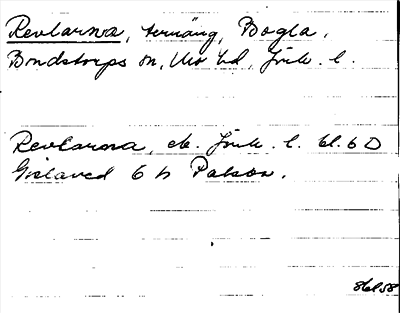 Revlarna, ternäng, Bogla,
Bondstorps sn, Mo hd, Jönk. l.
Revlarna, ek. Jönk. l. bl. 6 D
Gislaved 6 h Palson.